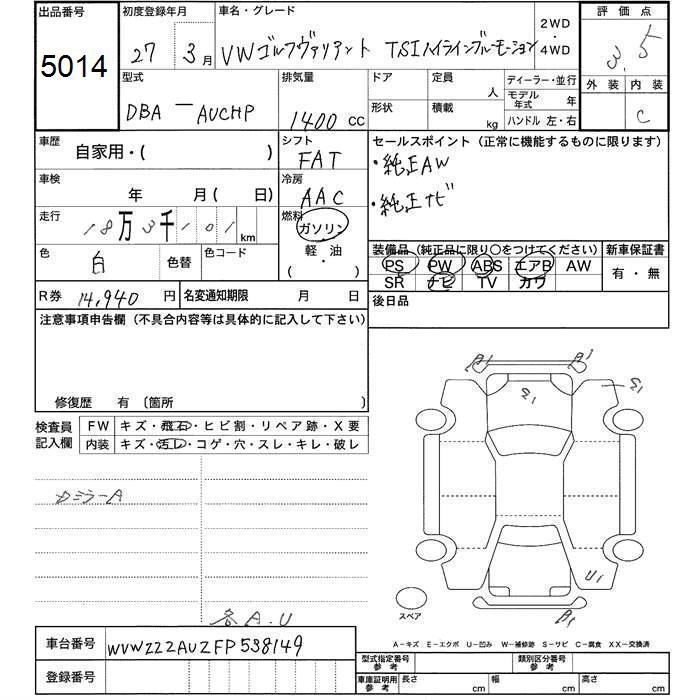 出品番号 5014
初度登録年月 27 3月
車名・グレード VWゴルフヴァリアント TSIハイラインブルーモーション
2WD ・ 4WD
評価点 3.5
外装 内装 C
型式 DBA-AUCHP
排気量 1400 CC
ドア 定員 人
形状 積載 kg
ディーラー・並行
モデル年式 年
ハンドル 左・右
車歴 自家用・( )
シフト FAT
セールスポイント（正常に機能するものに限ります）
・純正AW
・純正ナビ
車検 年 月( 日)
冷房 AAC
走行 18万3千101km
燃料 ガソリン・軽油
( )
色 白 色替 色コード
装備品（純正品に限り○をつけてください） 新車保証書
PS PW ABS エアB AW
SR ナビ TV カワ
有・無
R券 14,940 円 名変通知期限 月 日
後日品
注意事項申告欄（不具合内容等は具体的に記入して下さい）
修復歴 有 〔箇所
検査員記入欄
FW キズ・飛石・ヒビ割・リペア跡・X要
内装 キズ・汚レ・コゲ・穴・スレ・キレ・破レ
カミラーA
各A.U
A1 A1
E1 E1
U1
スペア
A-キズ E-エクボ U-凹み W-補修跡 S-サビ C-腐食 XX-交換済
車台番号 WVWZZZAUZFP538149
登録番号
型式指定番号 参考 類別区分番号 参考
車庫証明用 参考 長さ cm 幅 cm 高さ cm